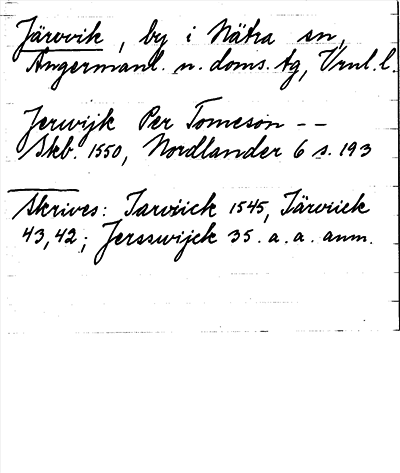 Järvvik, by i Nätra sn,
Ångermanl. n. doms. tg, Vrnl. l.
Jerwijk Per Tomeson --
Skb. 1550, Nordlander 6 s. 193
Skrives: Jarvick 1545, Järvvick
43, 42; Jersswijck 35. a. a. anm.